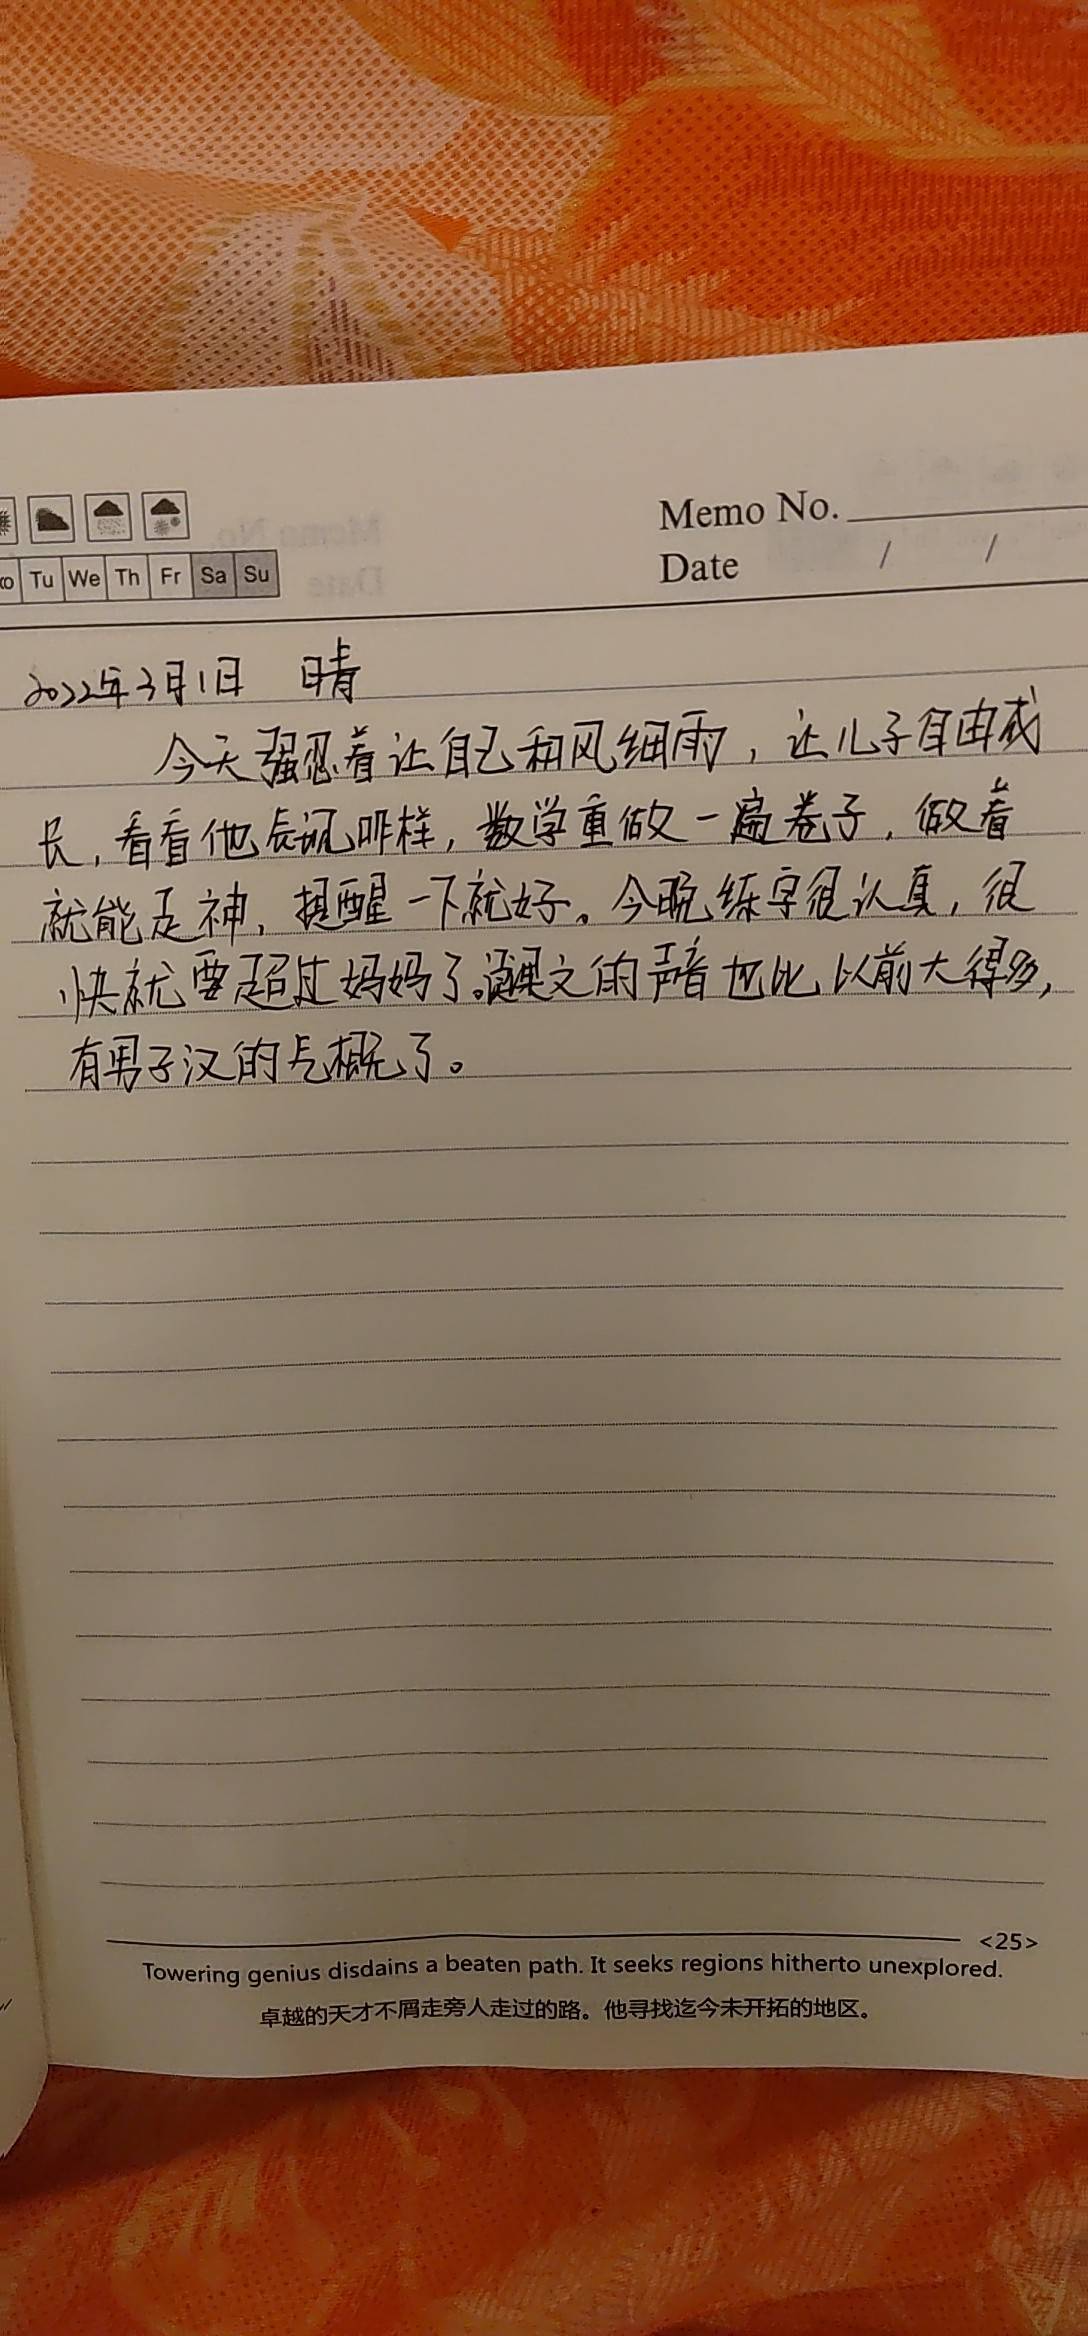 Memo No.
Date / /
Tu We Th Fr Sa Su
2022年3月1日 晴
今天强忍着让自己和风细雨，让儿子自由成
长，看看他表现咋样，数学重做一遍卷子，做着
就能走神，提醒一下就好。今晚练字很认真，很
快就要超过妈妈了。课文的声音也比以前大得多，
有男子汉的气概了。
<25>
Towering genius disdains a beaten path. It seeks regions hitherto unexplored.
卓越的天才不屑走旁人走过的路。他寻找迄今未开拓的地区。